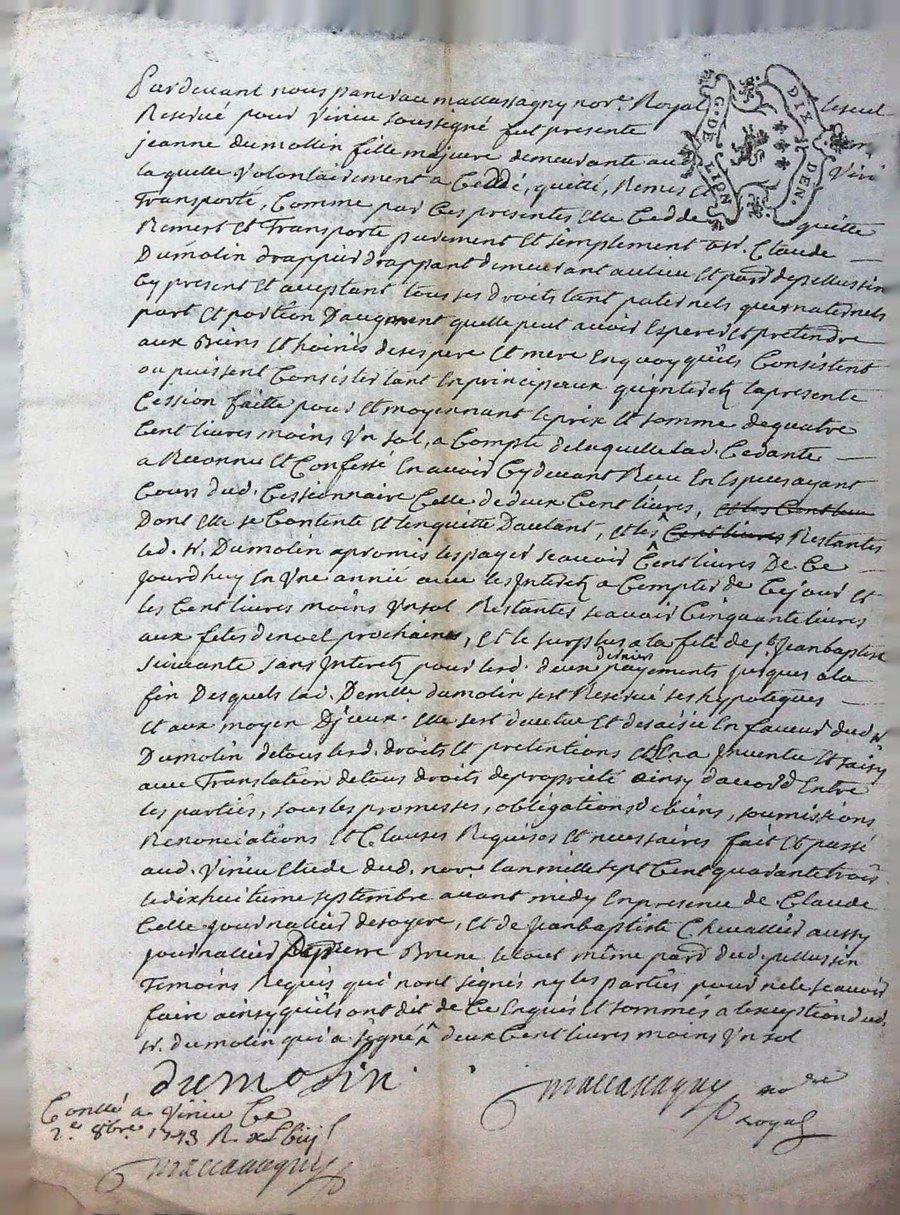 Pardevant nous pancrau maccassagny nore. Royal
Reservé pour Virieu soussigné fut presente
jeanne dumollin fille majeure demeurante au Viri
laquelle Volontairement a Ceddé, quitté, Remis et
Transporté, Comme par Ces presentes elle Cedde quitte
Remert et Transporte purement et simplement a sr. Claude
Dumolin drappier drappant demeurant au lieu et parr de pellussin
Cy present et acceptant tous ses droits tant paternels que maternels
part et portion Daugment quelle peut avoir Esperer et pretendre
aux Biens et hoiries de ses pere et mere En quoy qu'ils Consistent
ou puissent Consister tant En principeaux qu'interetz la presente
Cession faitte pour et moyennant le prix et somme de quatre
Cent livres moins Vn sol, a Compte de laquelle lad. Cedante
a Reconnu et Confessé En avoir Cy devant Receu En Especes ayant
Cours dud. Cessionnaire Celle de deux Cent livres, et les Cent
Dont elle se Contente et l'en quitte Dautant, et les ^ Cent livres Restantes
led. sr. Dumolin a promis les payer scavoir Cent livres De Ce
jourdhuy En Vne année avec les Interetz a Compter de Ce jour et
les Cent livres moins Vn sol Restantes scavoir Cinquante livres
aux fetes de noel prochaines, et le surplus a la fete de st Jean baptiste
suivante sans Interetz pour lesd. deux derniers payements jusques a la
fin Desquels lad. Demelle dumolin sest Reservé ses hypoteques
Et aux moyen Djceux elle sest devetue et desaisie En faveur dud sr
Dumolin de tous lesd. droits et pretentions et L'en a Jnvestu et saisy
avec Translation de tous droits de propriété ainsy d'accord Entre
les parties, sous les promesses, obligations de biens, soumissions
Renonciations et Clauses Requises et necessaires fait et passé
aud. Virieu Etude dud. nore. lan mille sept Cent quarante trois
le dix huitieme septembre avant midy En presence de Claude
Celle journalier de soyere, et de Jean baptiste Chevallier aussy
journallier De pierre Brune le tout même parr dud. pellussin
Temoins Requis qui nont signés ny les parties pour ne le scavoir
faire ainsy qu'ils ont dit de Ce Enquis et sommés a l'exception dud.
sr. dumolin qui a signé ^ deux Cent livres moins Vn sol
G. DE LYON
DIX DEN.
dumolin
maccassagny nore
Royal
Conllé a Virieu Ce
2e 8bre. 1743 R
maccassagny